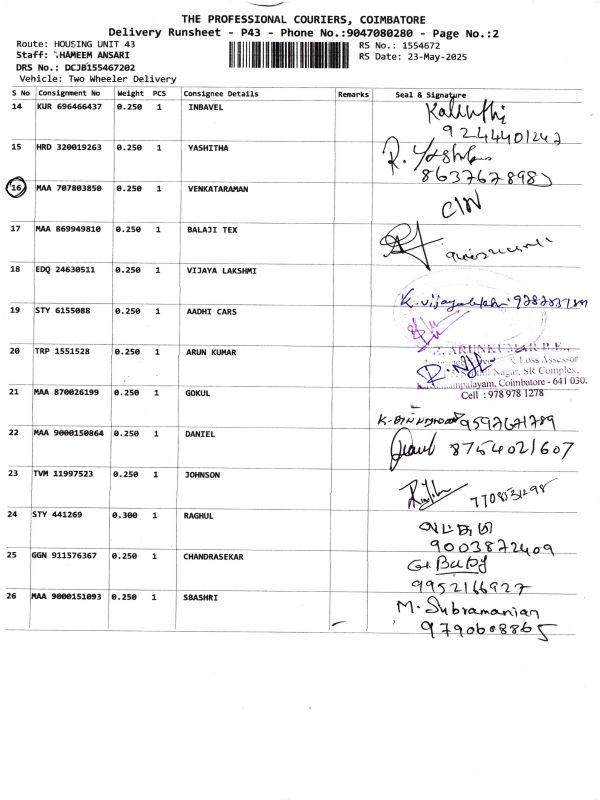 THE PROFESSIONAL COURIERS, COIMBATORE
Delivery Runsheet - P43 - Phone No.:9047080280 - Page No.:2
Route: HOUSING UNIT 43
RS No.: 1554672
Staff: HAMEEM ANSARI
RS Date: 23-May-2025
DRS No.: DCJB155467202
Vehicle: Two Wheeler Delivery
S No Consignment No Weight PCS Consignee Details Remarks Seal & Signature
14 KUR 696466437 0.250 1 INBAVEL
9244401247
15 HRD 320019263 0.250 1 YASHITHA R.
863767898
16 MAA 707803850 0.250 1 VENKATARAMAN
17 MAA 869949810 0.250 1 BALAJI TEX
18 EDQ 24630511 0.250 1 VIJAYA LAKSHMI
K. Vijayalakshmi
19 STY 6155088 0.250 1 AADHI CARS
20 TRP 1551528 0.250 1 ARUN KUMAR
ARUNKUMAR B.E.,
& Loss Assessor
Nagar, SR Complex,
Coimbatore - 641 030.
Cell : 978 978 1278
21 MAA 870026199 0.250 1 GOKUL
9597671789
22 MAA 9000150864 0.250 1 DANIEL
8754021607
23 TVM 11997523 0.250 1 JOHNSON
24 STY 441269 0.300 1 RAGHUL
9003872409
25 GGN 911576367 0.250 1 CHANDRASEKAR
G. BABY
9952166927
26 MAA 9000151093 0.250 1 SBASHRI
M. Subramanian
9790608865